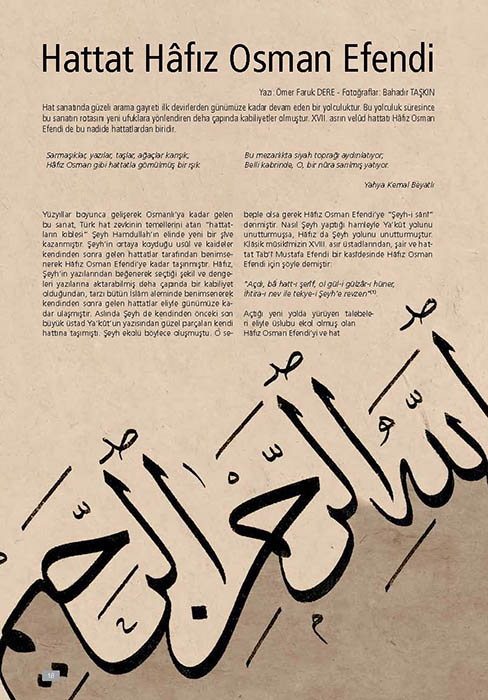 Hattat Hâfız Osman Efendi
Yazı: Ömer Faruk DERE - Fotoğraflar: Bahadır TAŞKIN
Hat sanatında güzeli arama gayreti ilk devirlerden günümüze kadar devam eden bir yolculuktur. Bu yolculuk süresince
bu sanatın rotasını yeni ufuklara yönlendiren deha çapında kabiliyetler olmuştur. XVII. asrın velûd hattatı Hâfız Osman
Efendi de bu nadide hattatlardan biridir.
Sarmaşıklar, yazılar, taşlar, ağaçlar karışık;
Hâfız Osman gibi hattatla gömülmüş bir ışık
Bu mezarlıkta siyah toprağı aydınlatıyor;
Belli kabrinde, O, bir nûra sarılmış yatıyor.
Yahya Kemal Beyatlı
Yüzyıllar boyunca gelişerek Osmanlı'ya kadar gelen
bu sanat, Türk hat zevkinin temellerini atan "hattat-
ların kıblesi" Şeyh Hamdullah'ın elinde yeni bir şîve
kazanmıştır. Şeyh'in ortaya koyduğu usûl ve kaideler
kendinden sonra gelen hattatlar tarafından benimse-
nerek Hâfız Osman Efendi'ye kadar taşınmıştır. Hâfız,
Şeyh'in yazılarından beğenerek seçtiği şekil ve denge-
leri yazılarına aktarabilmiş deha çapında bir kabiliyet
olduğundan, tarzı bütün İslâm aleminde benimsenerek
kendinden sonra gelen hattatlar eliyle günümüze ka-
dar ulaşmıştır. Aslında Şeyh de kendinden önceki son
büyük üstad Ya'kût'un yazısından güzel parçaları kendi
hattına taşımıştı. Şeyh ekolü böylece oluşmuştu. O se-
beple olsa gerek Hâfız Osman Efendi'ye "Şeyh-i sânî"
denmiştir. Nasıl Şeyh yaptığı hamleyle Ya'kût yolunu
unutturmuşsa, Hâfız da Şeyh yolunu unutturmuştur.
Klâsik mûsikîmizin XVIII. asır üstadlarından, şair ve hat-
tat Tab'î Mustafa Efendi bir kasîdesinde Hâfız Osman
Efendi için şöyle demiştir:
"Açdı, bâ hatt-ı şerîf, ol gül-i gülzâr-ı hüner,
İhtira-ı nev ile tekye-i Şeyh'e revzen"(1)
Açtığı yeni yolda yürüyen talebele-
ri eliyle üslubu ekol olmuş olan
Hâfız Osman Efendi'yi ve hat
الله الرحمن الرحيم
18